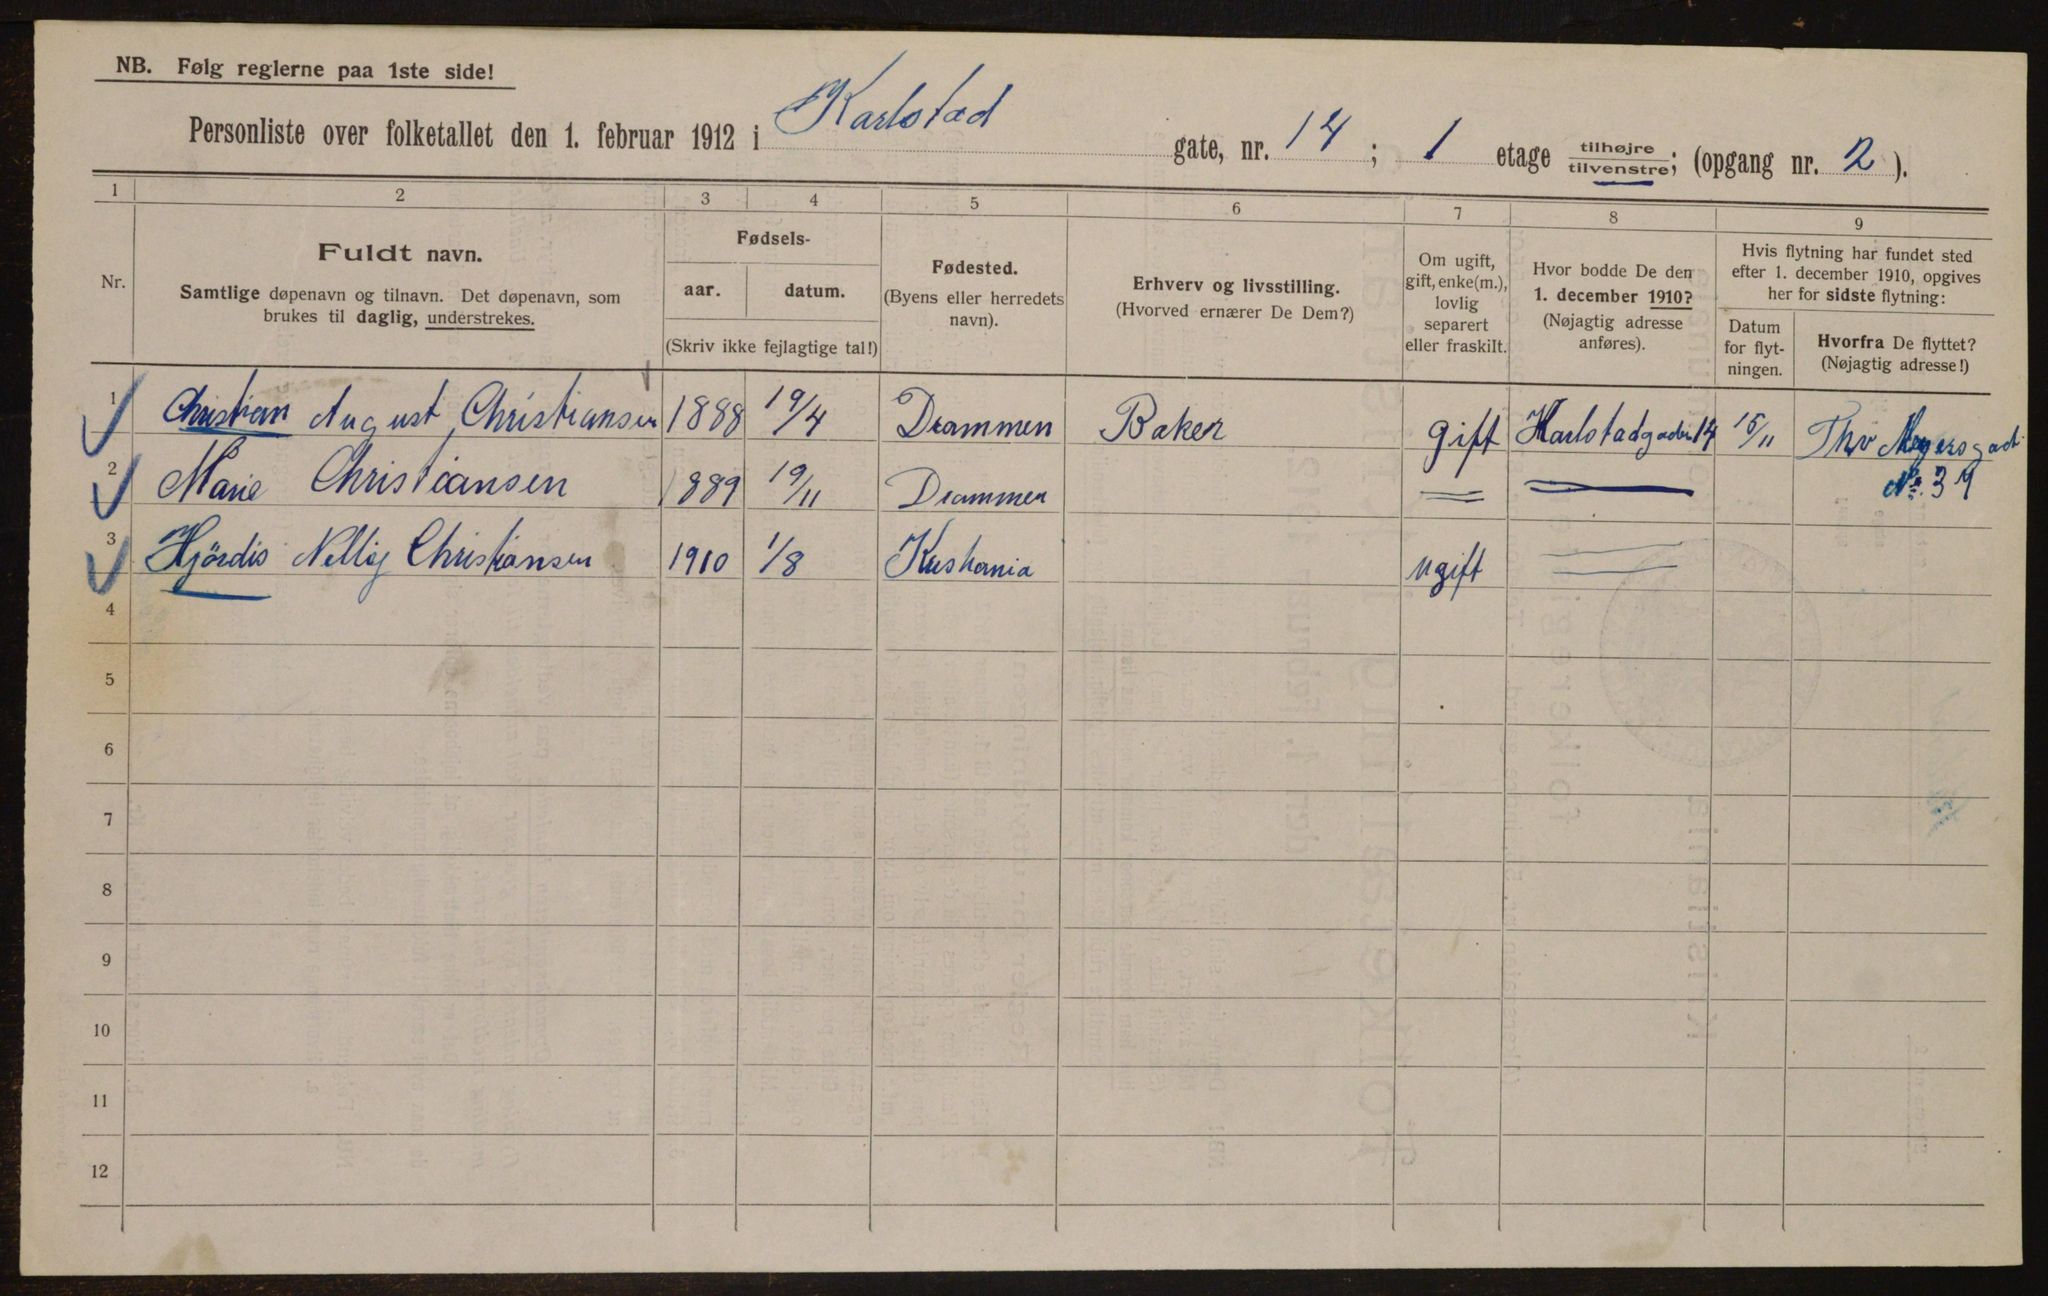 NB. Følg reglerne paa 1ste side!
Personliste over folketallet den 1. februar 1912 i Karlstad gate, nr. 14 ; 1 etage tilhøjre tilvenstre; (opgang nr. 2 ).
1 2 3 4 5 6 7 8 9
Nr.
Fuldt navn.
Samtlige døpenavn og tilnavn. Det døpenavn, som
brukes til daglig, understrekes.
Fødsels-
aar. datum.
(Skriv ikke fejlagtige tal!)
Fødested.
(Byens eller herredets
navn).
Erhverv og livsstilling.
(Hvorved ernærer De Dem?)
Om ugift,
gift, enke(m.),
lovlig
separert
eller fraskilt.
Hvor bodde De den
1. december 1910?
(Nøjagtig adresse
anføres).
Hvis flytning har fundet sted
efter 1. december 1910, opgives
her for sidste flytning:
Datum
for flyt-
ningen.
Hvorfra De flyttet?
(Nøjagtig adresse!)
1 Christian August Christiansen 1888 19/4 Drammen Baker gift Karlstadgaden 14 15/11 Thv Meyersgad
2 Marie Christiansen 1889 19/11 Drammen = = No. 39
3 Hjördis Nelly Christiansen 1910 1/8 Kristiania ugift =
4
5
6
7
8
9
10
11
12